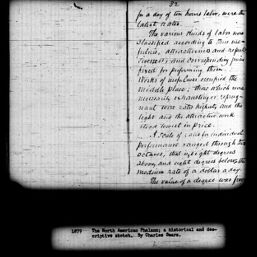 32
for a day of ten hours labor, were the
latest rates.
The various kinds of labor was
classified according to its use-
fulness, attractiveness and repul-
siveness; and corresponding prices
fixed for performing them.
Works of usefulness occupied the
middle place; that which was
necessarily exhausting or repug-
nant were rated highest and the
light and the attractive work
stood lowest in price.
A scale of for individual
performance ranged through two
octaves, that is, eight degrees
above and eight degrees below the
medium rate of a dollar a day.
The value of a degree was five
1879 The North American Phalanx; a historical and des-
criptive sketch. By Charles Sears.